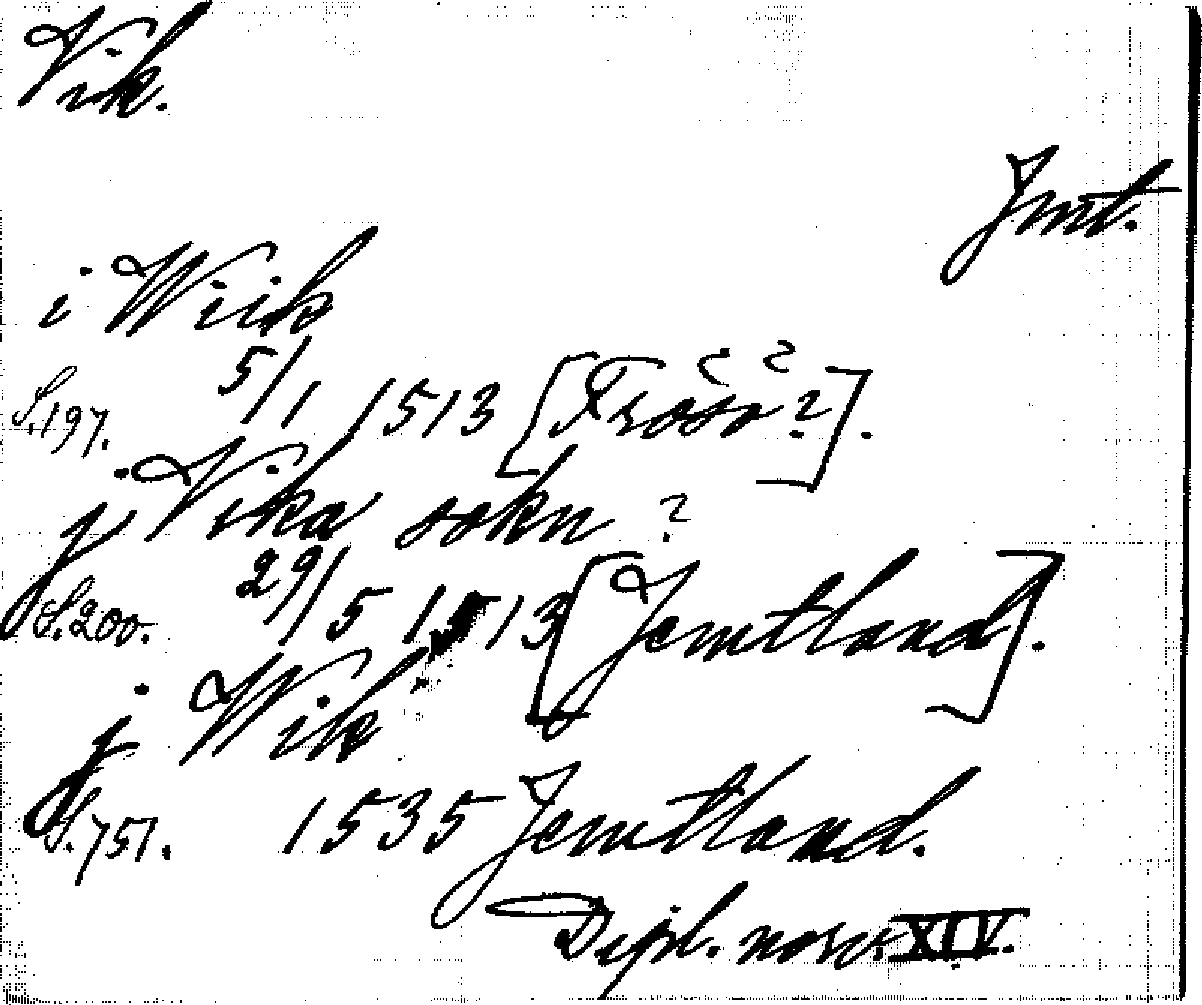 Vik.
Jmt.
i Wiik
S. 197. 5/1 1513 [Frösö?].
j Vika sokn ?
S. 200. 29/5 1513 [Jemtland].
j Wik
S. 751. 1535 Jemtland.
Dipl. norv. XIV.